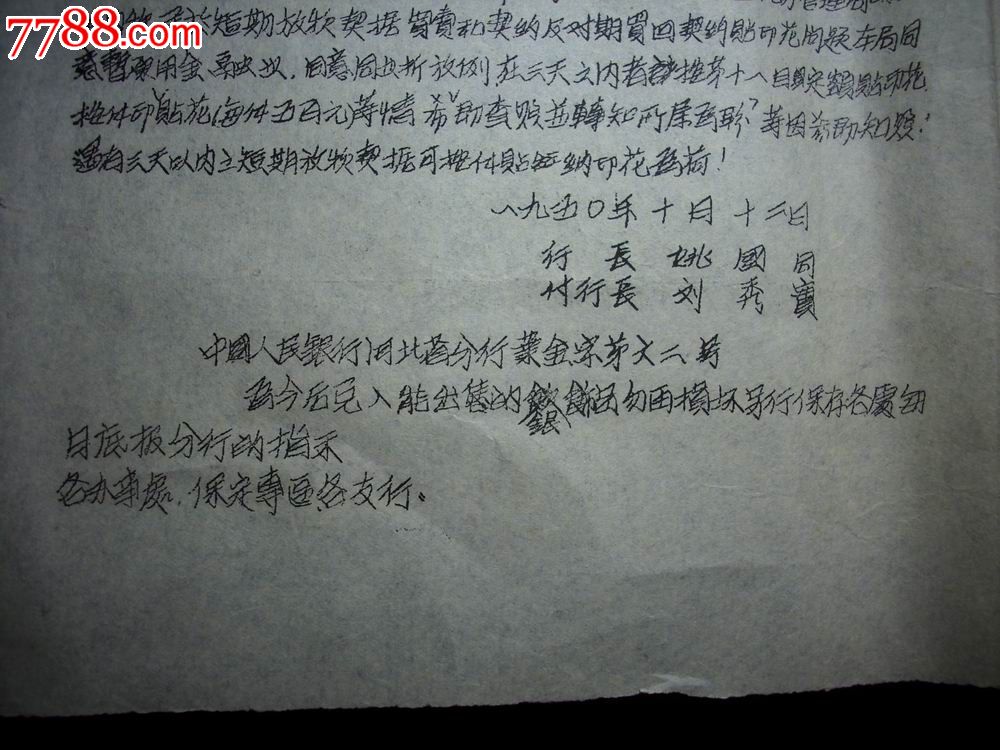 7788.com
短期放款契据買賣和契約及对期買回契約貼印花问题本局同
意暫 用金 同意同业拆放例在三天之内者 按第十八目 定額貼印花
按件 貼花(每件五百元)等情希 勛查照並轉知所屬 等因 知照
有三天以内之短期放款契据可按件貼 納印花為荷!
一九五〇年十月十三日
行長 姚國同
付行長 刘秀寶
中國人民銀行河北省分行業金字第六二號
為今后兑入能出售的銀 品勿再損坏另行保存各處旬
月底报分行的指示
各办事處.保定專區各支行。